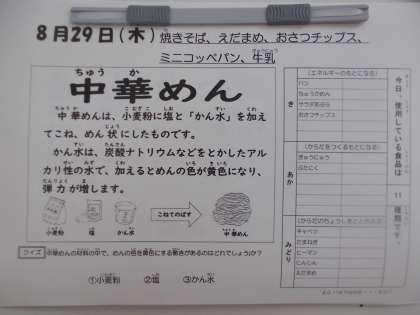 8月29日(木)焼きそば、えだまめ、おさつチップス、
ミニコッペパン、牛乳
ぎゅうにゅう
ちゅう か
中華めん
中華めんは、小麦粉に塩と「かん水」を加え
てこね、めん状にしたものです。
かん水は、炭酸ナトリウムなどをとかしたアル
カリ性の水で、加えるとめんの色が黄色になり、
弾力が増します。
小麦粉 塩 かん水
こねてのばす
中華めん
クイズ 中華めんの材料の中で、めんの色を黄色にする働きがあるのはどれでしょうか?
①小麦粉 ②塩 ③かん水
今日、使用している食品は
11
種類です。
き
(エネルギーのもとになる)
パン
ちゅうかめん
サラダあぶら
おさつチップス
あか
(からだをつくるもとになる)
ぎゅうにゅう
ぶたにく
みどり
キャベツ
たまねぎ
ピーマン
にんじん
えだまめ